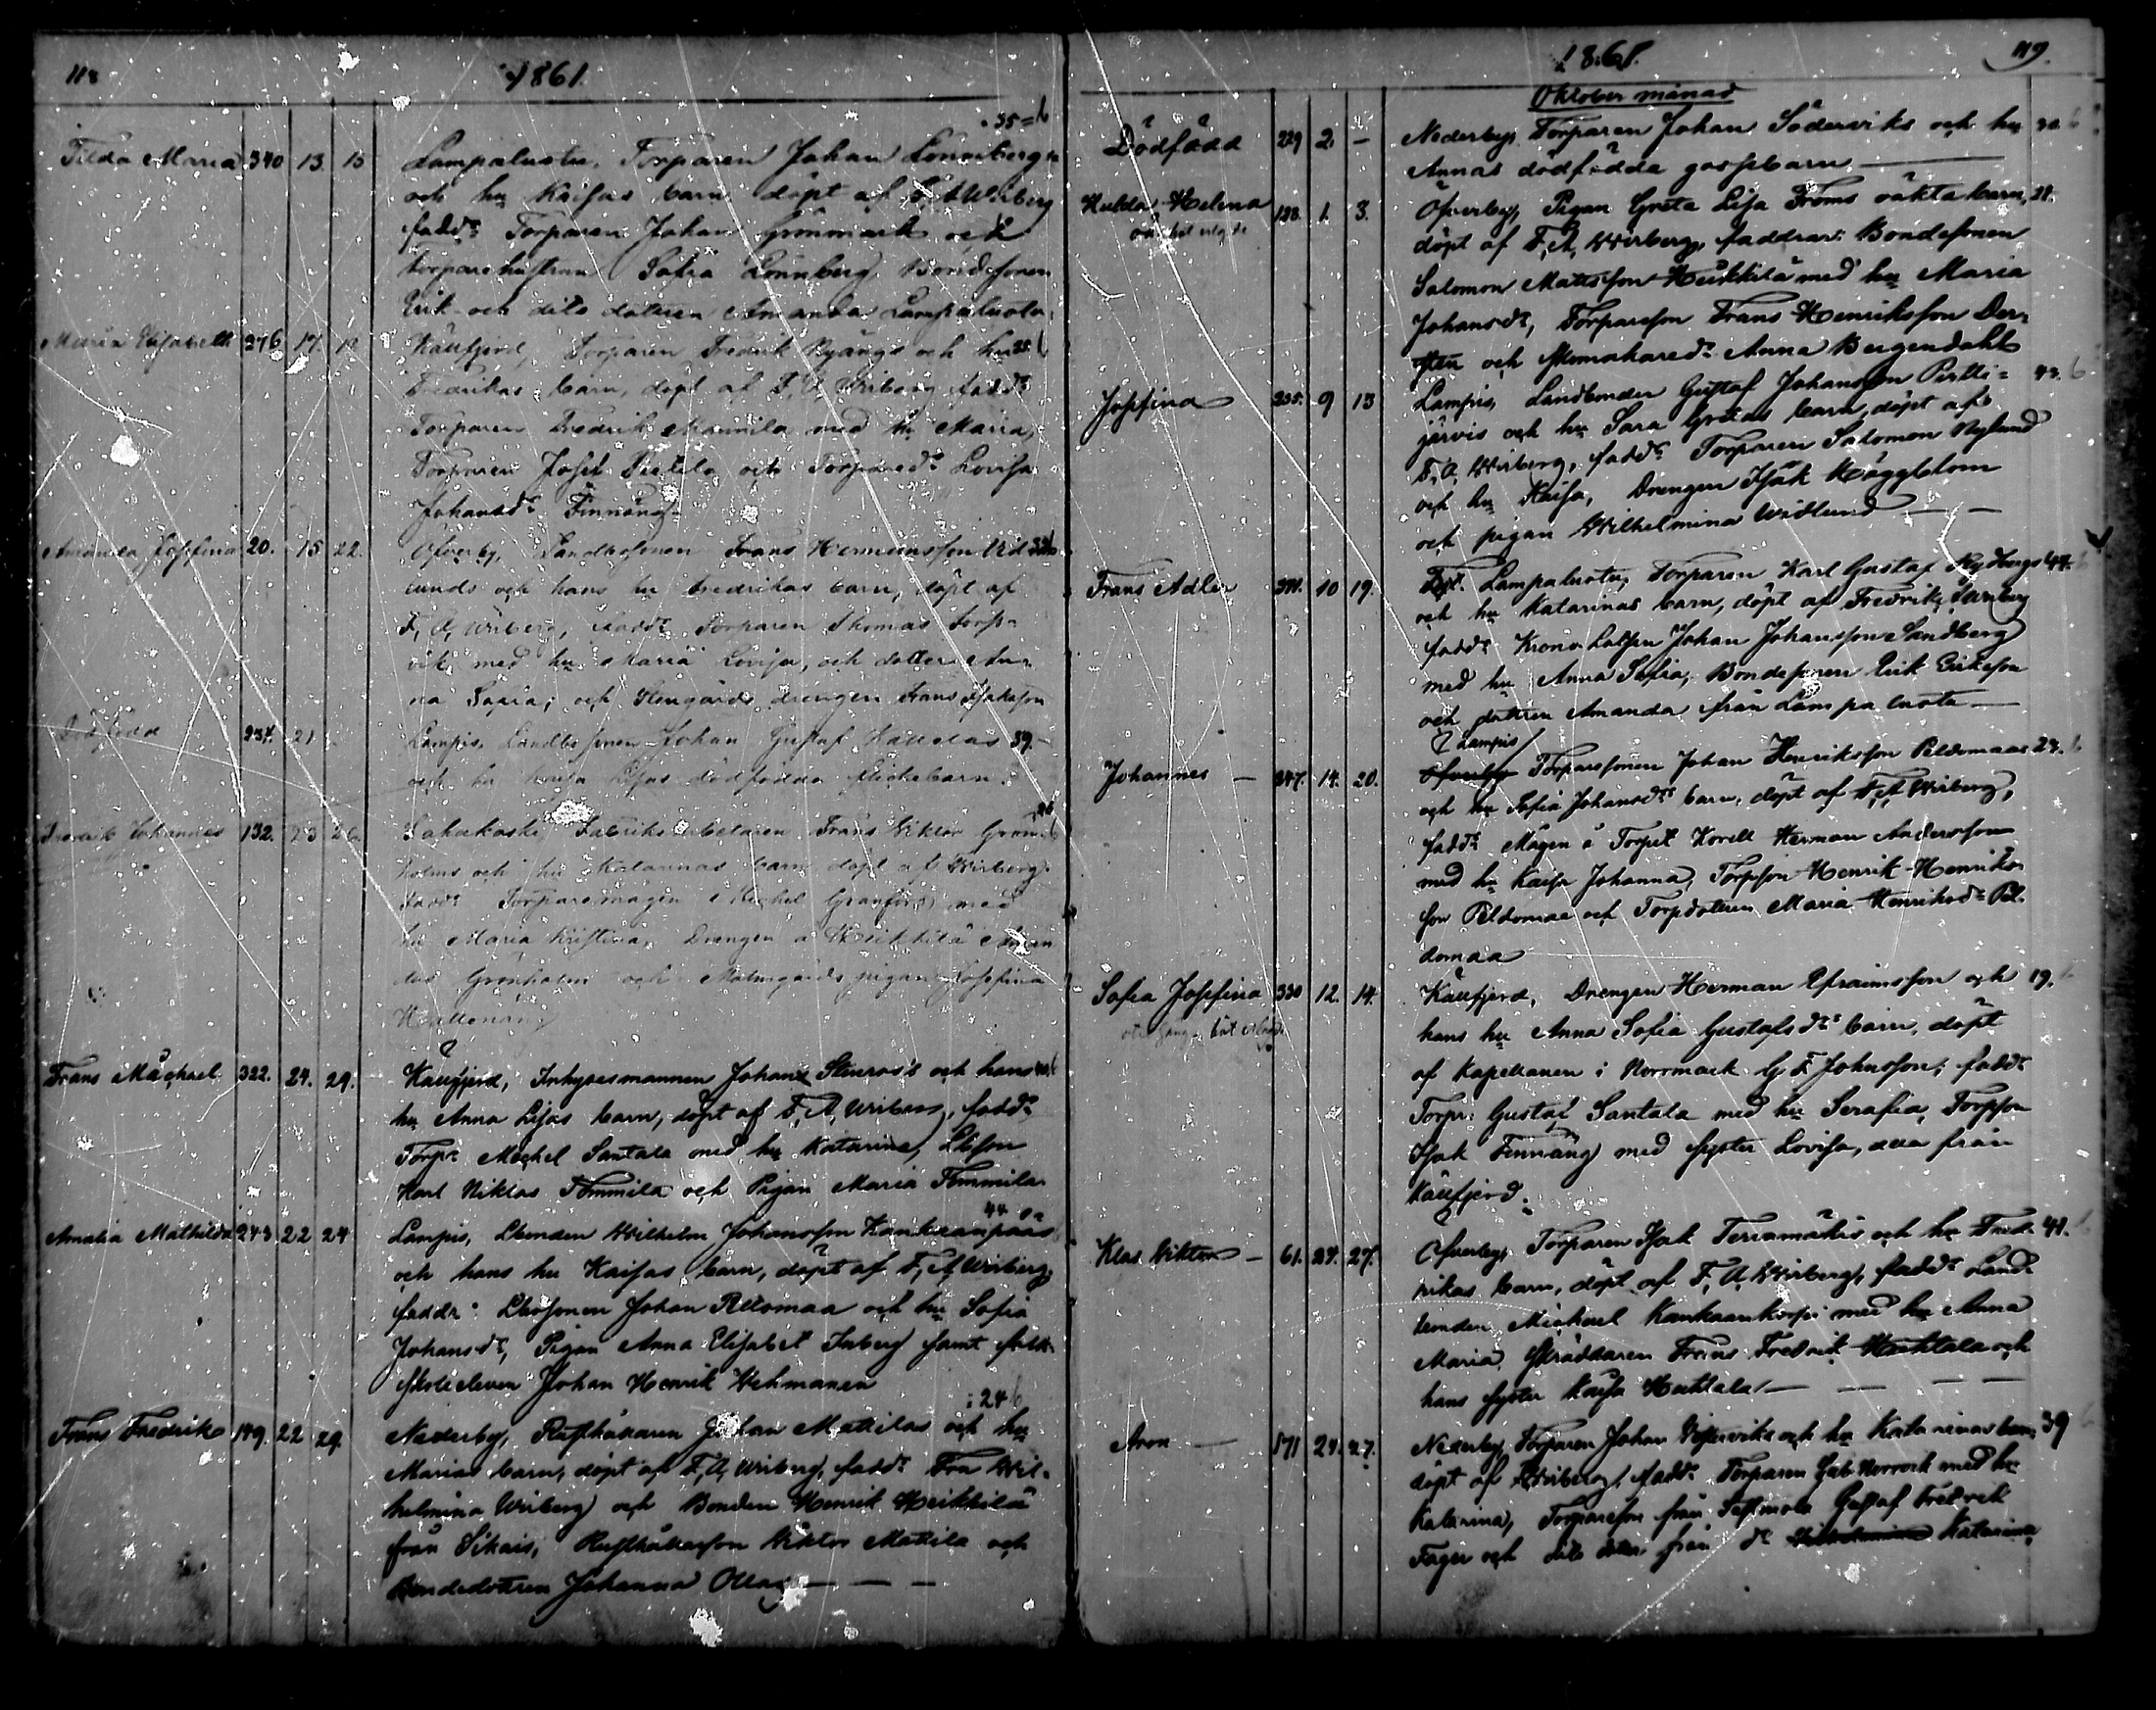 118
1861.
Tilda Maria 340 13. 15 Lampaluoto, Torparen Johan Lönnbergs 35
och hu Kaisas barn döpt af F. A. Wirberg
fadd: Torparen Johan Grönmark och
torparehustrun Sofia Lönnberg, Bondesonen
Erik och dito dottren Amanda Lampaluoto.
Maria Elisabeth 276 17. Källfjerd, Torparen Fredrik Nyängs och hu
Fredrikas barn, döpt af F. A. Wirberg fadd:
Torparen Fredrik Mannila med hu Maria,
Torparen Josef och Torpared: Lovisa
Johansd: Finnäng.
Amanda Josefina 20. 15 22. Öfverby, Landbosonen Frans Hermansson
lunds och hans hu Fredrikas barn, döpt af
F. A. Wirberg, fadd: Torparen Thomas Torp-
vik med hu Maria Lovisa, och dotter An-
na Sofia; och drengen Frans Isaksson
Dödfödd 237. 21 Lampis, Landbosonen Johan Gustaf 39.
och hu Kaisa Lisas dödfödda flickebarn.
Fredrik Johannes 132. 23 26. Lahakoski Fabriksarbetaren Frans Viktor Grön-
holms och hu Katarinas barn döpt af Wirberg.
fadd: Torparemågen Mickel Granfors med
hu Maria Kristina, Drengen å Heikkilä
Grönholm och Malmgårds pigan Josefina
Hallonäng
Frans Michael 322. 24. 29. Källfjerd, Inhysesmannen Johan Stenros's och hans
hu Anna Lisas barn, döpt af F. A. Wirberg, fadd:
Torp: Mickel Santala med hu Katarina,
Karl Niklas Tommila och Pigan Maria Tommila.
Amalia Mathilda 243 22 24 Lampis, Lbonden Wilhelm Johansson Kankaanpääs 44
och hans hu Kaisas barn, döpt af F. A. Wirberg,
faddr: Lbosonen Johan Peldomaa och hu Sofia
Johansd:, Pigan Anna Elisabet Inberg samt
skoleeleven Johan Henrik Wehmanen
Frans Fredrik 149. 22 29. Nederby, Rusthållaren Johan Mattilas och hu 24
Marias barn, döpt af F. A. Wirberg, fadd: Fru Wil-
helmina Wirberg och Bonden Henrik Heikkilä
från Sikais, Rusthållarson Viktor Mattila och
Bondedottren Johanna
119.
1861.
Oktober månad
Dödfödd 229 2. – Nederby, Torparen Johan Söderviks och hu
Annas dödfödda gossebarn
Hulda Helena 128. 1. 3. Öfverby, Pigan Greta Lisa Froms oäkta barn, 28.
döpt af F. A. Wirberg, faddrar: Bondesonen
Salomon Mattsson Heikkilä med hu Maria
Johansd:, Torpareson Frans Henriksson
och Skomakared: Anna Bergendahl
Josefina 235. 9 13 Lampis, Landbonden Gustaf Johansson Pirtti-
järvis och hu Sara Gretas barn, döpt af
F. A. Wirberg, fadd: Torparen Salomon Nylund
och hu Kaisa, Drengen Isak Häggblom
och pigan Wilhelmina Widlund
Frans Adler 10 19. Lampaluoto, Torparen Karl Gustaf Rydbergs 44.
och hu Katarinas barn, döpt af Fredrik Wirberg
fadd: Krono Lotsen Johan Johansson Sandberg
med hu Anna Sofia, Bondesonen Erik Eriksson
och dottren Amanda från Lampaluoto
Lampis
Johannes – 247. 14. 20. Öfverby Torparesonen Johan Henriksson Peldomaas 23.
och hu Sofia Johansd:s barn, döpt af F. A. Wirberg,
fadd: Mågen å Torpet Korell Herman Andersson
med hu Kaisa Johanna, Torpson Henrik Henriks-
son Peldomaa och Torpdottren Maria Henriksd: Pel-
domaa
Sofia Josefina 330 12. 14. Källfjerd, Drengen Herman Efraimsson och 19.
hans hu Anna Sofia Gustafsd:s barn, döpt
af Kapellanen i Norrmark G. F. Johnsson; fadd:
Torpr: Gustaf Santala med hu Serafia, Torpson
Isak Finnäng med syster Lovisa, alla från
Källfjerd.
Klas Viktor – 61. 24. 27. Öfverby, Torparen Isak Terinmäkis och hu Fred- 41.
rikas barn, döpt af F. A. Wirberg, fadd: Land-
bonden Michael Kankaankorpi med hu Anna
Maria, Skräddaren Frans Fredrik Huhtala och
hans syster Kaisa Huhtala
Aron – 171 24. 27. Nederby, Torparen Johan Vesterviks och hu Katarinas barn, 39
döpt af Wirberg, fadd: Torparen Norrvik med hu
Katarina, Torpareson från Sastmola Gustaf Fredrik
Fager och dito från d: Wilhelmina Katarina